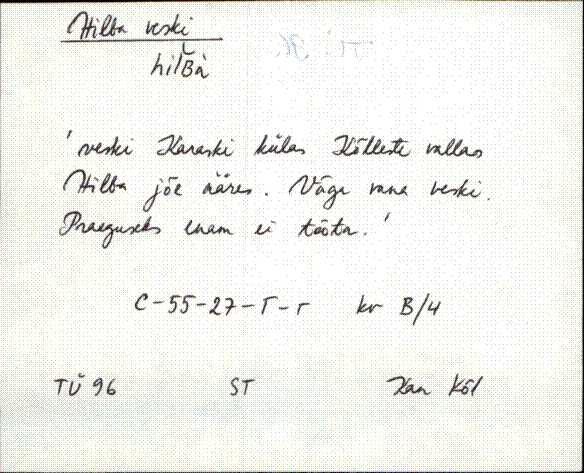 Hilba veski
hilʙ̆à
'veski Karaski külas Kõlleste vallas
Hilba jõe ääres. Väga vana veski.
Praeguseks enam ei tööta.'
C-55-27-Г-г kv B/4
TÜ 96 ST Kan Kõl